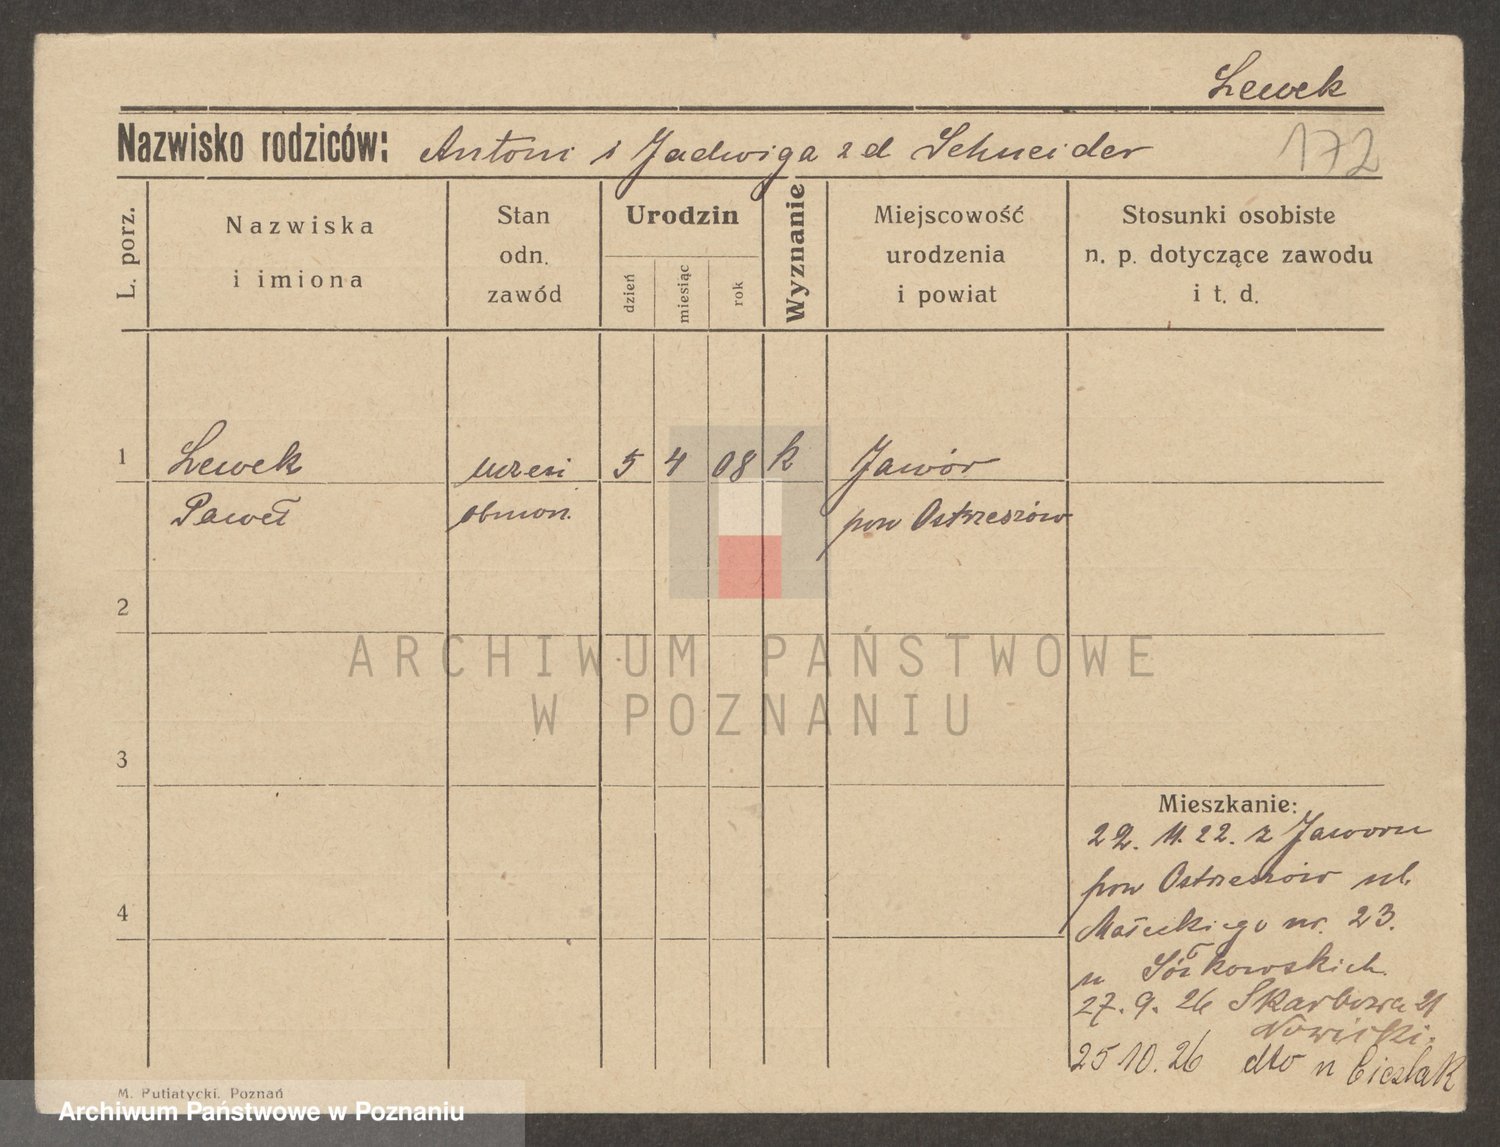 Lewek
Nazwisko rodziców: Antoni i Jadwiga z d Schneider
172
L. porz.
Nazwiska
i imiona
Stan
odn.
zawód
Urodzin
dzień
miesiąc
rok
Wyznanie
Miejscowość
urodzenia
i powiat
Stosunki osobiste
n. p. dotyczące zawodu
i t. d.
1
Lewek
Paweł
uczeń
5
4
08
k
Jawór
pow Ostrzeszów
2
ARCHIWUM PAŃSTWOWE
W POZNANIU
3
4
Mieszkanie:
22. 11. 22. z Jaworu
pow Ostrzeszów ul.
Małeckiego nr. 23.
u
27. 9. 26 Skarbowa 21
Nowicki.
25 10. 26 dto u Cieslak
M. Putiatycki, Poznań
Archiwum Państwowe w Poznaniu